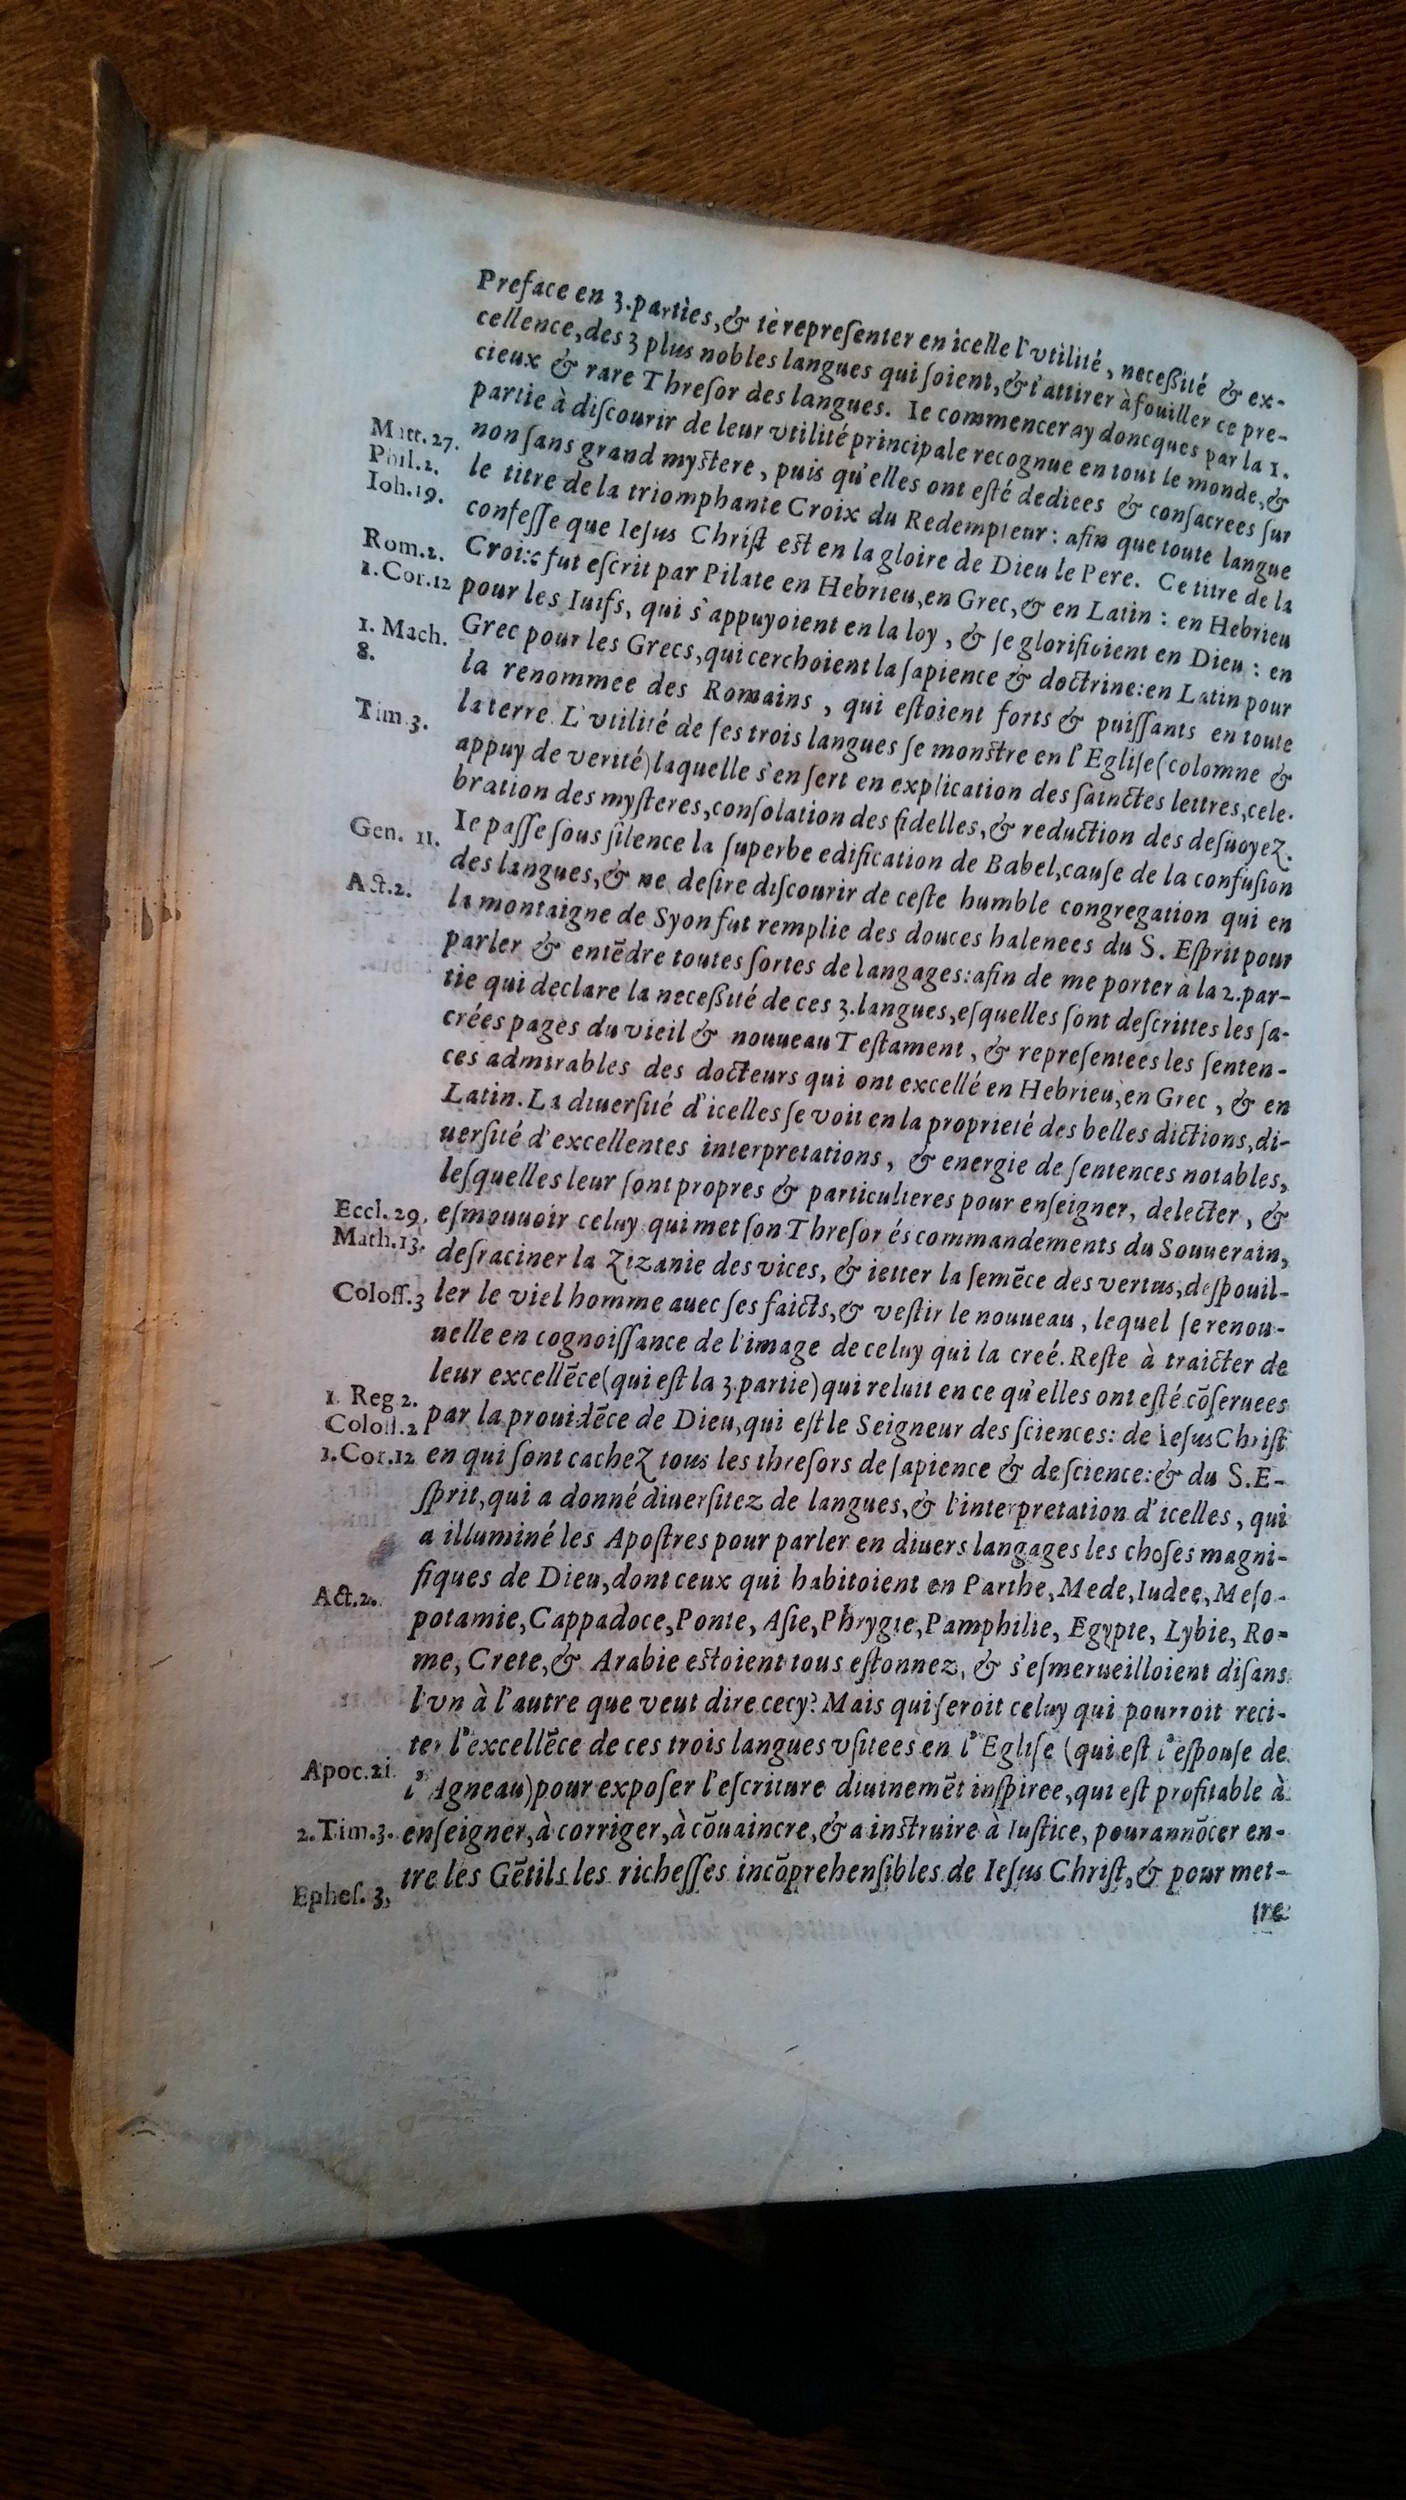 Preface en 3. parties, & te representer en icelle l'vtilité, neceßité & ex-
cellence, des 3 plus nobles langues qui soient, & t'attirer à fouiller ce pre-
cieux & rare Thresor des langues. Ie commenceray doncques par la 1.
partie à discourir de leur vtilité principale recognue en tout le monde, &
Matt. 27. non sans grand mystere, puis qu'elles ont esté dediees & consacrees sur
Phil. 2. le titre de la triomphante Croix du Redempteur : afin que toute langue
Ioh. 19. confesse que Iesus Christ est en la gloire de Dieu le Pere. Ce titre de la
Rom. 2. Croix fut escrit par Pilate en Hebrieu, en Grec, & en Latin : en Hebrieu
1. Cor. 12 pour les Iuifs, qui s'appuyoient en la loy, & se glorifioient en Dieu : en
1. Mach. Grec pour les Grecs, qui cerchoient la sapience & doctrine: en Latin pour
8. la renommee des Romains, qui estoient forts & puissants en toute
Tim. 3. la terre. L'vtilité de ses trois langues se monstre en l'Eglise (colomne &
appuy de verité) laquelle s'en sert en explication des sainctes lettres, cele-
bration des mysteres, consolation des fidelles, & reduction des desuoyez.
Gen. 11. Ie passe sous silence la superbe edification de Babel, cause de la confusion
des langues, & ne desire discourir de ceste humble congregation qui en
Act. 2. la montaigne de Syon fut remplie des douces halenees du S. Esprit pour
parler & entēdre toutes sortes de langages: afin de me porter à la 2. par-
tie qui declare la neceßité de ces 3. langues, esquelles sont descrittes les sa-
créés pages du vieil & nouueau Testament, & representees les senten-
ces admirables des docteurs qui ont excellé en Hebrieu, en Grec, & en
Latin. La diuersité d'icelles se voit en la proprieté des belles dictions, di-
uersité d'excellentes interpretations, & energie de sentences notables,
lesquelles leur sont propres & particulieres pour enseigner, delecter, &
Eccl. 29. esmouuoir celuy qui met son Thresor és commandements du Souuerain,
Math. 13. desraciner la Zizanie des vices, & ietter la semēce des vertus, despouil-
Coloss. 3 ler le viel homme auec ses faicts, & vestir le nouueau, lequel se renou-
uelle en cognoissance de l'image de celuy qui la creé. Reste à traicter de
leur excellēce (qui est la 3. partie) qui reluit en ce qu'elles ont esté cōseruees
1. Reg 2. par la prouidēce de Dieu, qui est le Seigneur des sciences: de Iesus Christ
Coloss. 2
1. Cor. 12 en qui sont cachez tous les thresors de sapience & de science: & du S. E-
sprit, qui a donné diuersitez de langues, & l'interpretation d'icelles, qui
a illuminé les Apostres pour parler en diuers langages les choses magni-
fiques de Dieu, dont ceux qui habitoient en Parthe, Mede, Iudee, Meso-
Act. 2. potamie, Cappadoce, Ponte, Asie, Phrygie, Pamphilie, Egypte, Lybie, Ro-
me, Crete, & Arabie estoient tous estonnez, & s'esmerueilloient disans
l'vn à l'autre que veut dire cecy? Mais qui seroit celuy qui pourroit reci-
ter l'excellēce de ces trois langues vsitees en l'Eglise (qui est l'espouse de
Apoc. 21. l'Agneau) pour exposer l'escriture diuinemēt inspiree, qui est profitable à
2. Tim. 3. enseigner, à corriger, à cōuaincre, & a instruire à Iustice, pour annōcer en-
Ephes. 3, tre les Gētils les richesses incōprehensibles de Iesus Christ, & pour met-
tre